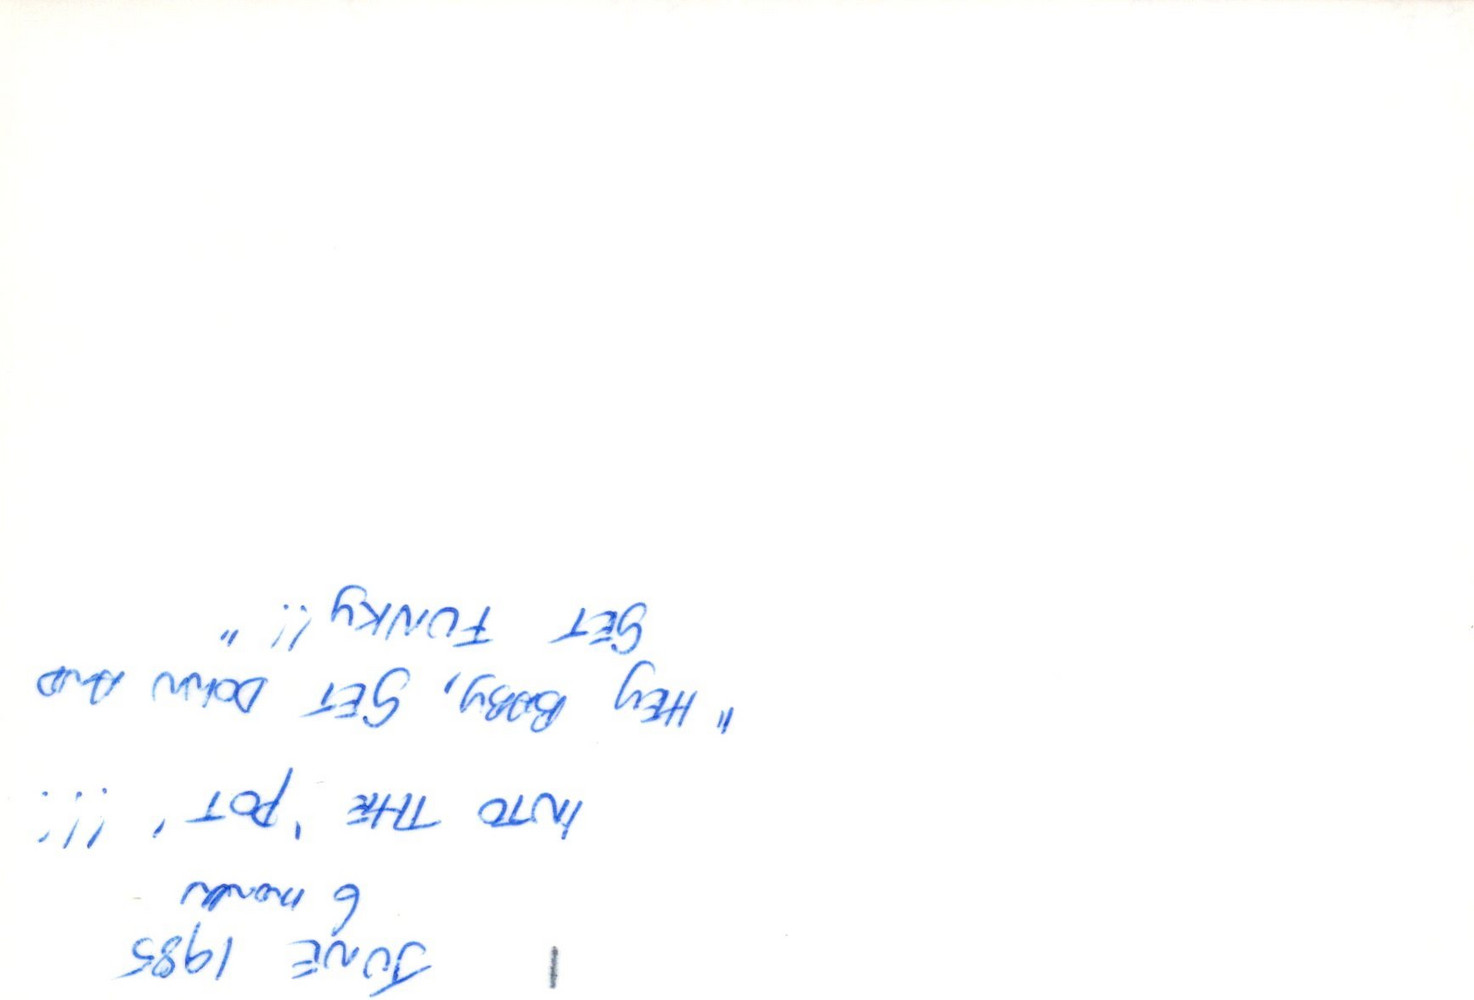 JUNE 1985
6 months
INTO THE 'POT' !!!
"HEY BABY, GET DOWN AND
GET FUNKY!!"